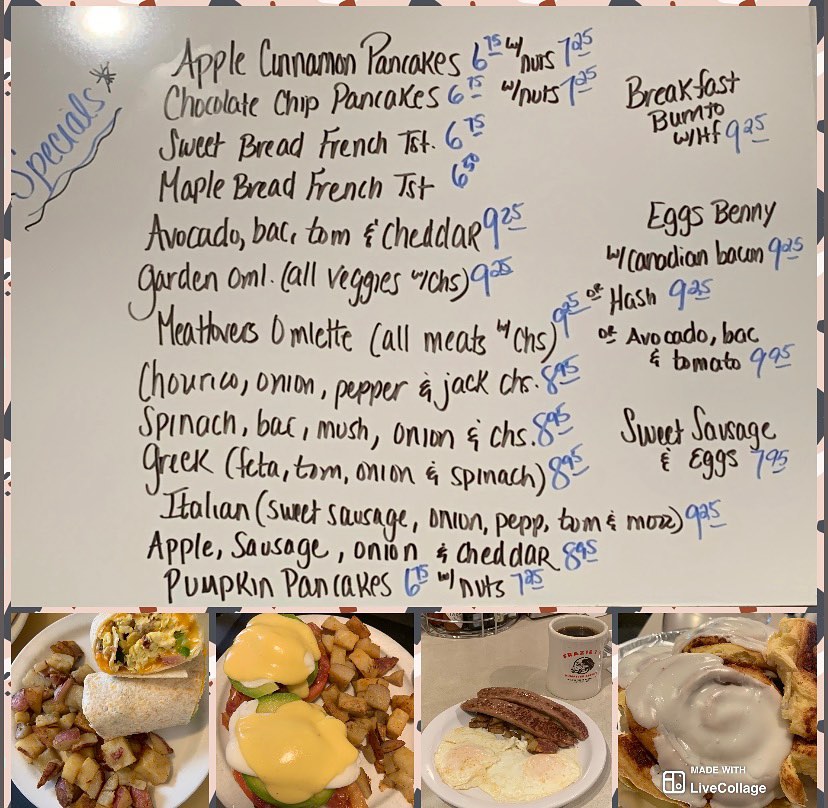 Specials*
Apple Cinnamon Pancakes 6.75 w/ nuts 7.25
Chocolate Chip Pancakes 6.75 w/nuts 7.25
Sweet Bread French Tst. 6.75
Maple Bread French Tst 6.50
Avocado, bac, tom & cheddar 9.25
Garden Oml. (all veggies w/chs) 9.25
Meatlovers Omlette (all meats w/ chs) 9.25
Chourico, onion, pepper & jack chs. 8.95
Spinach, bac, mush, onion & chs. 8.95
Greek (feta, tom, onion & spinach) 8.95
Italian (sweet sausage, onion, pepp, tom & mozz) 9.25
Apple, Sausage, onion & cheddar 8.95
Pumpkin Pancakes 6.75 w/ nuts 7.25
Breakfast
Burrito
w/Hf 9.25
Eggs Benny
w/Canadian bacon 9.25
or Hash 9.25
or Avocado, bac
& tomato 9.95
Sweet Sausage
& Eggs 7.95
MADE WITH
LiveCollage